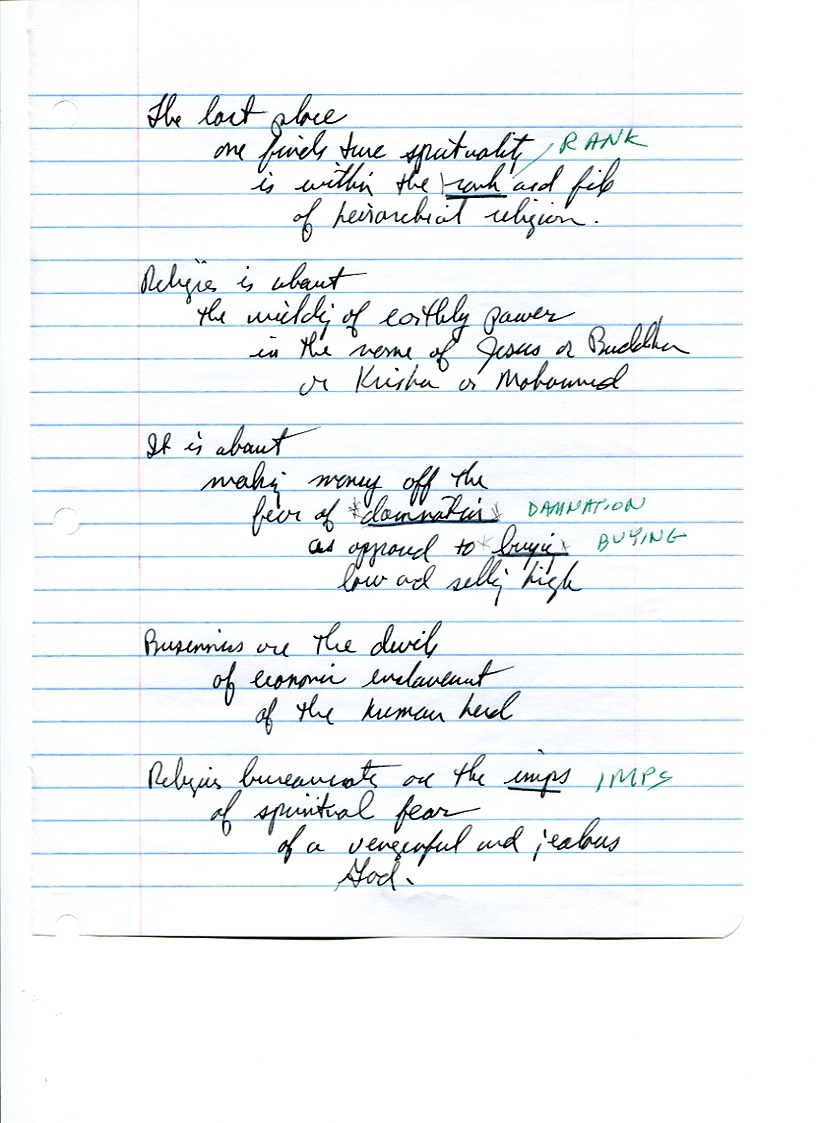 The last place
one finds true spirituality RANK
is within the rank and file
of heirarchial religion.
Religion is about
the wielding of earthly power
in the name of Jesus or Buddha
or Krisha or Mohammed
It is about
making money off the
fear of *damnation* DAMNATION
as opposed to *buying* BUYING
low and selling high
are the devils
of economic enslavement
of the human herd
Religious bureaucrats are the imps IMPS
of spiritual fear
of a vengenful and jealous
God.